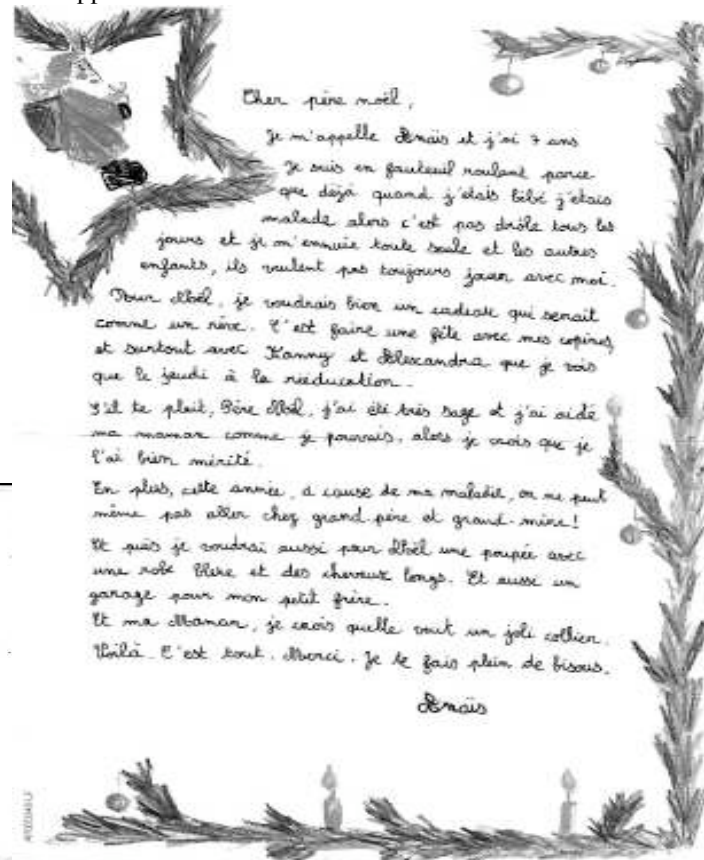 Cher père noël,
Je m'appelle Anaïs et j'ai 7 ans
Je suis en fauteuil roulant parce
que déjà quand j'étais bébé j'étais
malade alors c'est pas drôle tous les
jours et je m'ennuie toute seule et les autres
enfants, ils veulent pas toujours jouer avec moi.
Pour Noël, je voudrais bien un cadeau qui serait
comme un rêve. C'est faire une fête avec mes copines,
et surtout avec Fanny et Alexandra que je vois
que le jeudi à la rééducation.
S'il te plait, Père Noël, j'ai été très sage et j'ai aidé
ma maman comme je pouvais, alors je crois que je
l'ai bien mérité.
En plus, cette année, à cause de ma maladie, on ne peut
même pas aller chez grand-père et grand-mère!
Et puis je voudrai aussi pour Noël une poupée avec
une robe bleue et des cheveux longs. Et aussi un
garage pour mon petit frère.
Et ma Maman, je crois quelle veut un joli collier.
Voilà. C'est tout. Merci. Je te fais plein de bisous.
Anaïs